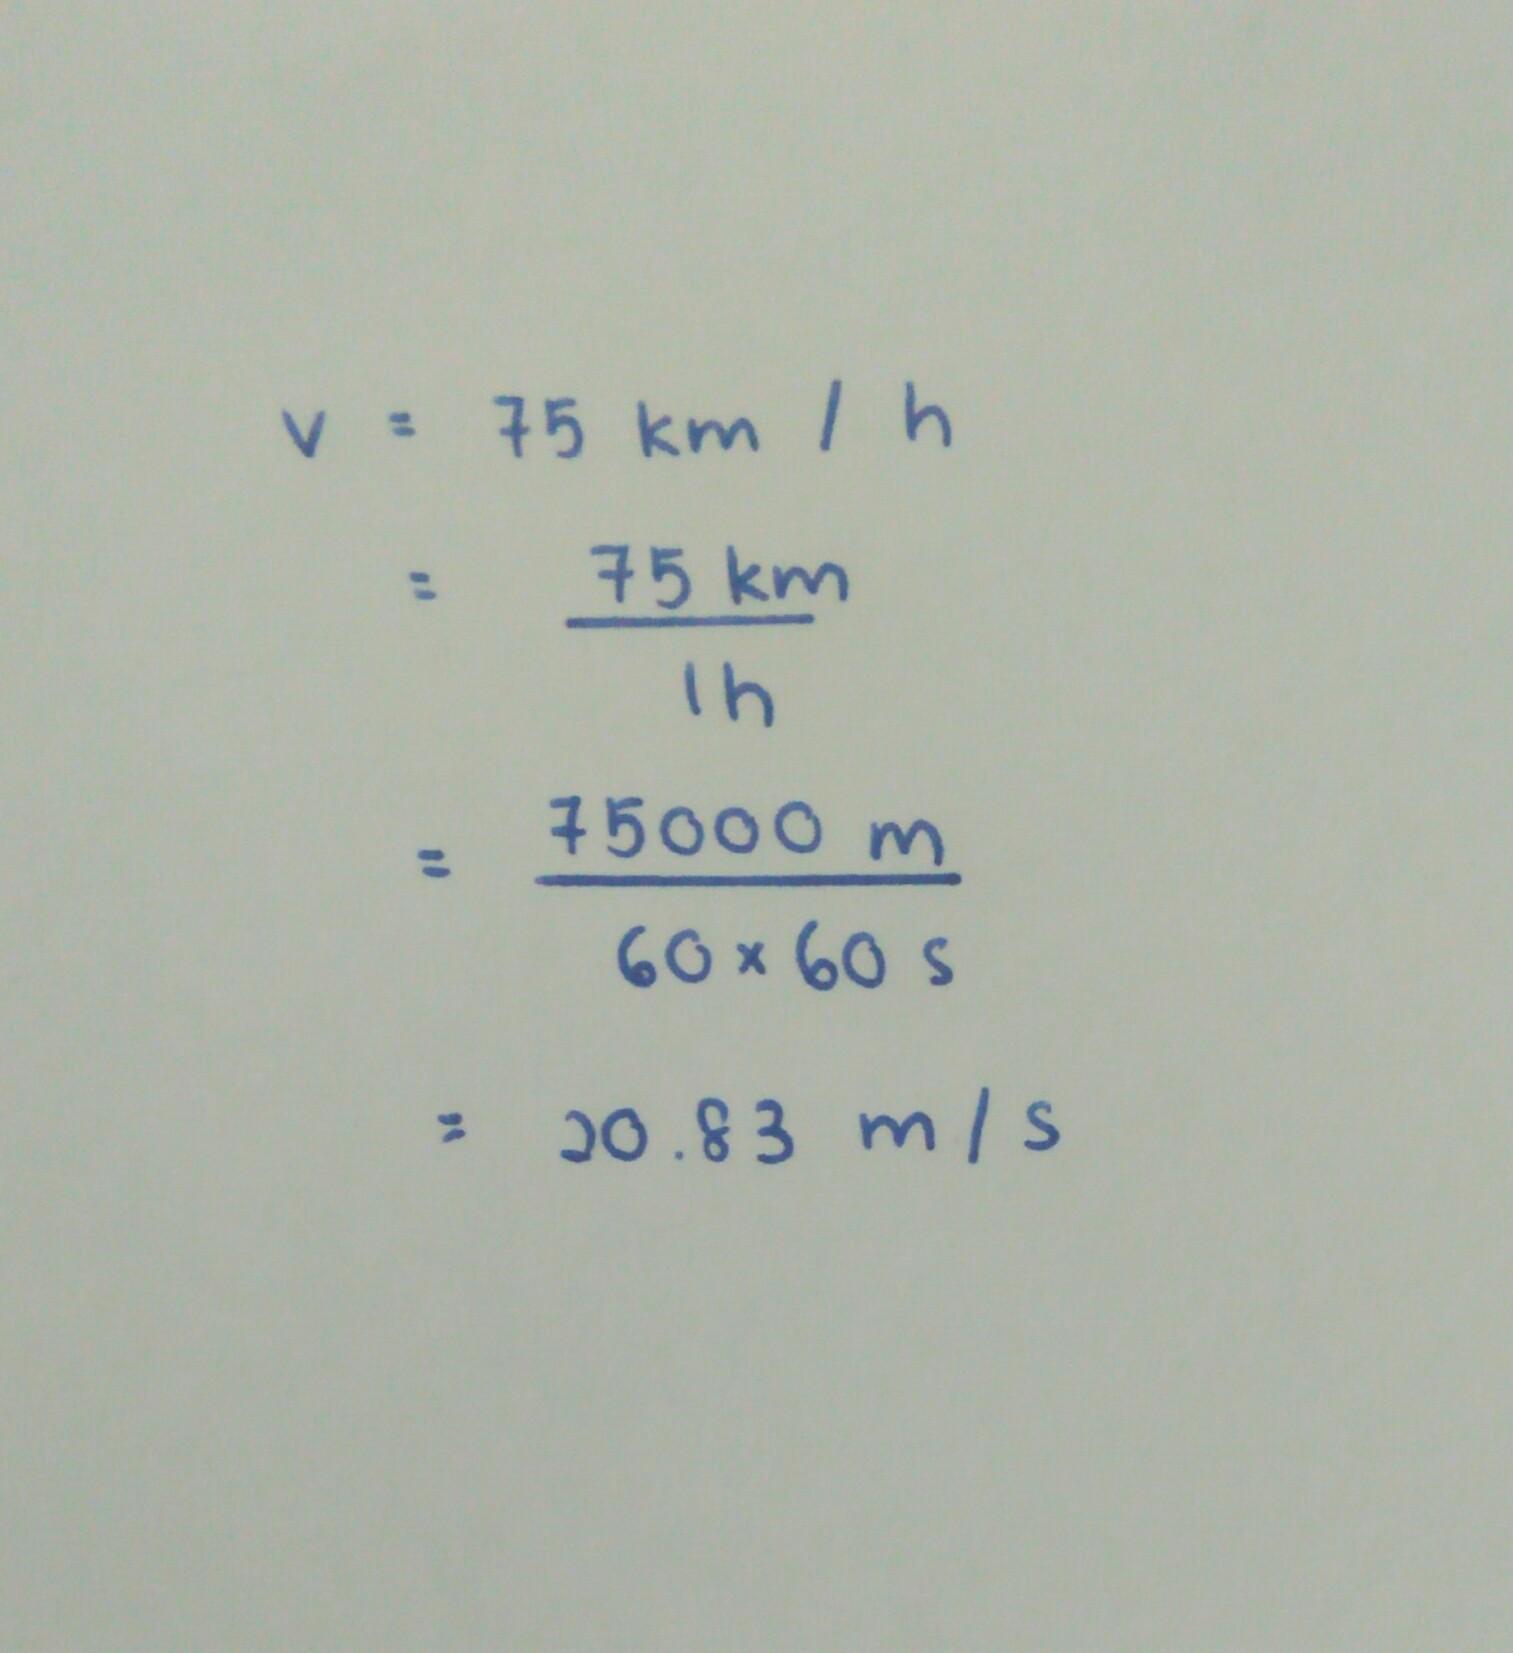 v = 75 km / h
= 75 km
1h
= 75000 m
60 × 60 s
= 20.83 m/s